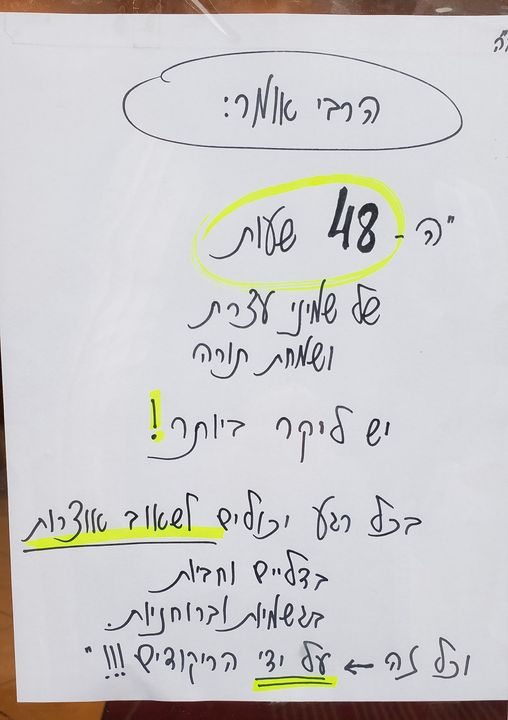 הרבי אומר:
"ה- 48 שעות
של שמיני עצרת
ושמחת תורה
יש ליקר ביותר!
בכל רגע יכולים לשאוב אוצרות
בדליים וחביות
בגשמיות וברוחניות.
וכל זה ← על ידי הריקודים!!!"